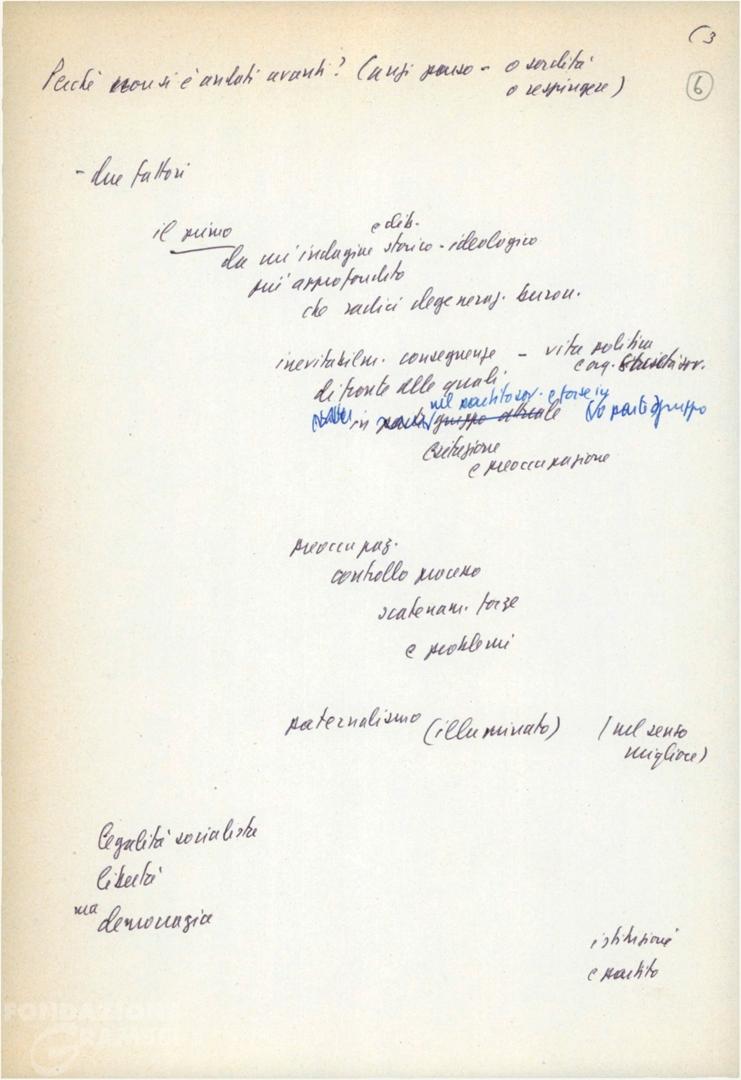 (3
Perché non si è andati avanti? (anzi passo - o sordità
o respingere)
6
- due fattori
il primo
e dib.
da un'indagine storico-ideologico
più approfondito
che radici degeneraz. buroc.
inevitabilm. conseguenze - vita politica
e org.
di fronte alle quali
nel partito sov. e forse in
in gruppo attuale (o parti gruppo
esitazione
e preoccupazione
preoccupaz.
controllo processo
scatenam. forze
e problemi
paternalismo (illuminato) (nel senso
migliore)
legalità socialista
libertà
ma democrazia
istituzioni
e partito
FONDAZIONE
GRAMSCI